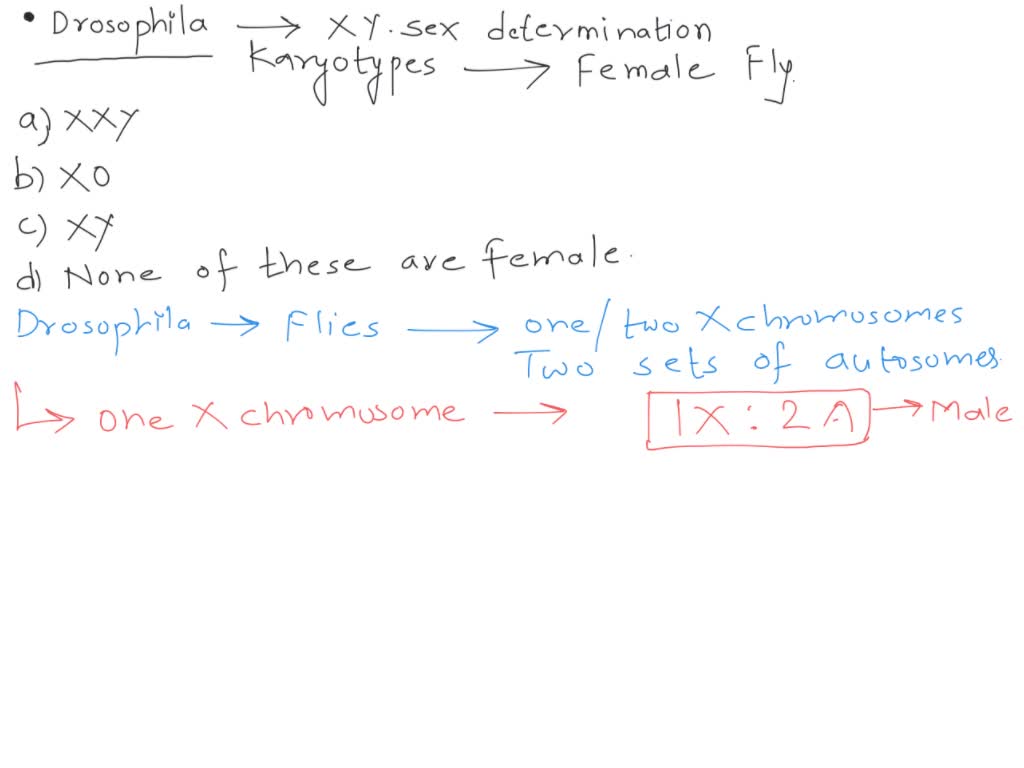 • Drosophila → XY. sex determination
Karyotypes → Female Fly.
a) XXY
b) XO
c) XY
d) None of these are female.
Drosophila → Flies → one/two X chromosomes
Two sets of autosomes.
↳ one X chromosome → 1X : 2A → Male